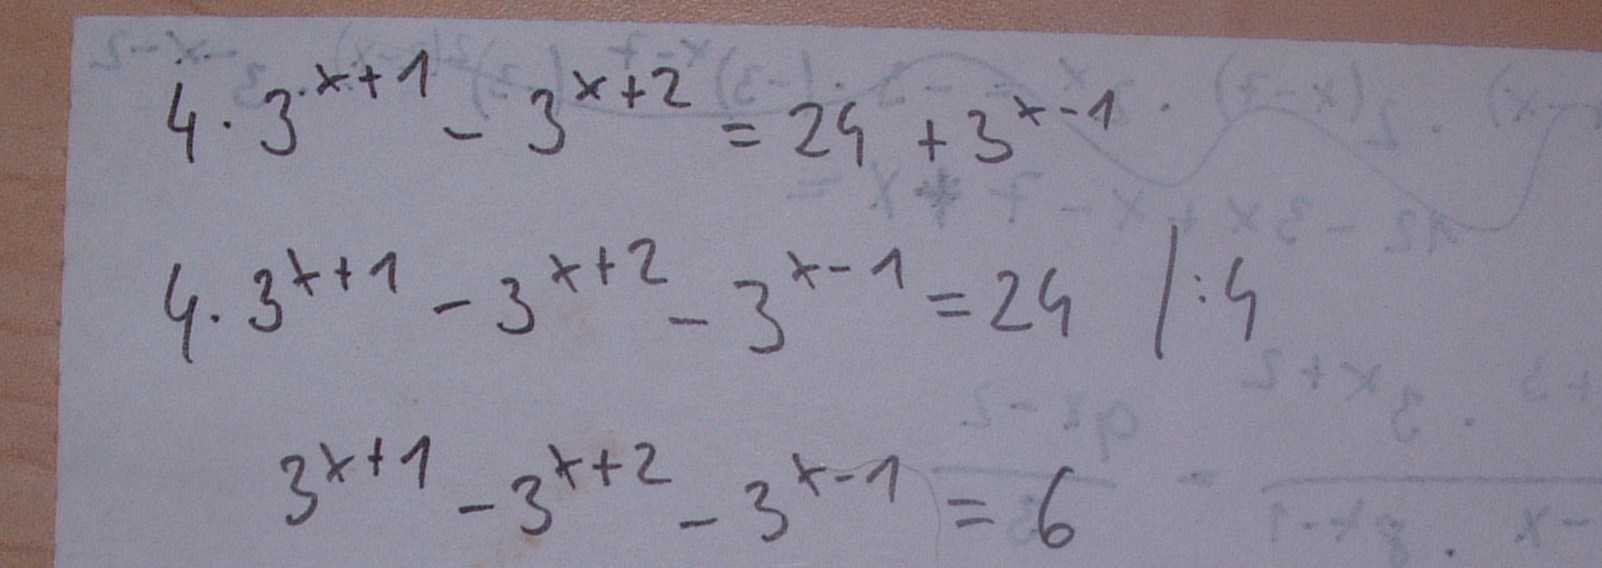 4 · 3^{x+1} - 3^{x+2} = 24 + 3^{x-1}
4 · 3^{x+1} - 3^{x+2} - 3^{x-1} = 24 | : 4
3^{x+1} - 3^{x+2} - 3^{x-1} = 6